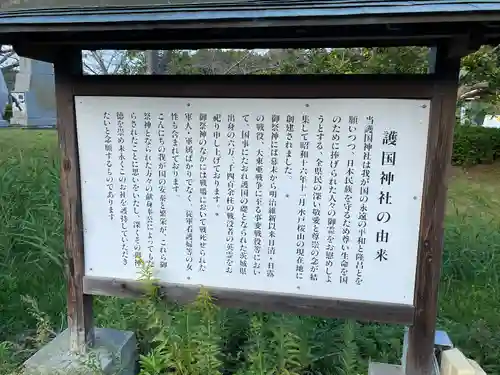 護国神社の由来
当護国神社は我が国の永遠の平和と隆昌とを
願いつつ、日本民族を守るため尊い生命を国
のために捧げられた人々の御霊をお慰めしよ
うとする、全県民の深い敬愛と尊崇の念が結
集して昭和十六年十一月水戸桜山の現在地に
創建されました。
御祭神には幕末から明治維新以来日清・日露
の戦役、大東亜戦争に至る事変戦役等におい
て、国事にたおれ護国の礎となられた茨城県
出身の六万三千四百余柱の戦没者の英霊をお
祀り申し上げております。
御祭神のなかには戦場において戦死せられた
軍人・軍属ばかりでなく、従軍看護婦等の女
性も含まれております
こんにちの我が国の安泰と繁栄が、これら御
祭神となられた方々の献身奉公によってもた
らされたことに思いをいたし、深くその御
徳を崇め末永くこのお社を護持していただき
たいと念願するものであります。